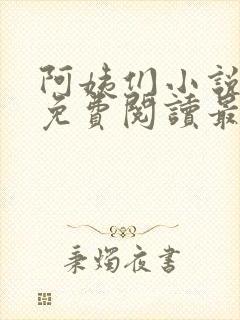 阿姨们小說
免費閱讀最
秉燭夜書